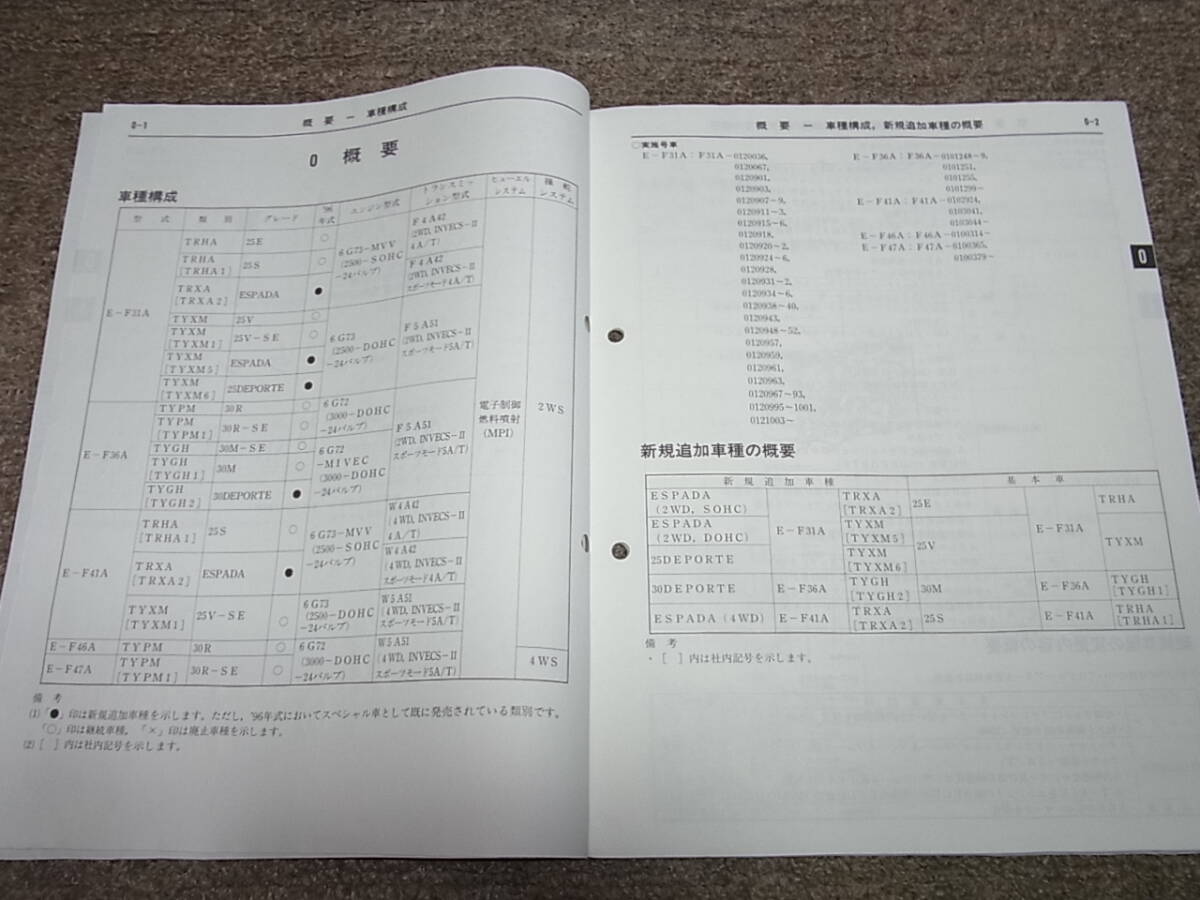 0-1
概 要 － 車種構成
0 概 要
車種構成
型 式 類 別 グレード '96年式 エンジン型式 トランスミッション型式 ヒューエルシステム 操 舵 システム
E－F31A
TRHA 25E ○ 6G73-MVV (2500-SOHC-24バルブ) F4A42 (2WD, INVECS-II 4A/T)
TRHA [TRHA1] 25S ○ F4A42 (2WD, INVECS-II スポーツモード4A/T)
TRXA [TRXA2] ESPADA ●
TYXM 25V ○ 6G73 (2500-DOHC-24バルブ) F5A51 (2WD, INVECS-II スポーツモード5A/T)
TYXM [TYXM1] 25V-SE ○
TYXM [TYXM5] ESPADA ●
TYXM [TYXM6] 25DEPORTE ●
E－F36A
TYPM 30R ○ 6G72 (3000-DOHC-24バルブ) F5A51 (2WD, INVECS-II スポーツモード5A/T)
TYPM [TYPM1] 30R-SE ○
TYGH 30M-SE ○ 6G72-MIVEC (3000-DOHC-24バルブ)
TYGH [TYGH1] 30M ○
TYGH [TYGH2] 30DEPORTE ●
電子制御燃料噴射 (MPI)
2WS
E－F41A
TRHA [TRHA1] 25S ○ 6G73-MVV (2500-SOHC-24バルブ) W4A42 (4WD, INVECS-II 4A/T)
TRXA [TRXA2] ESPADA ● W4A42 (4WD, INVECS-II スポーツモード4A/T)
TYXM [TYXM1] 25V-SE ○ 6G73 (2500-DOHC-24バルブ) W5A51 (4WD, INVECS-II スポーツモード5A/T)
E－F46A TYPM 30R ○ 6G72 (3000-DOHC-24バルブ) W5A51 (4WD, INVECS-II スポーツモード5A/T) 4WS
E－F47A TYPM [TYPM1] 30R-SE ○
備 考
(1)「●」印は新規追加車種を示します。ただし，'96年式においてスペシャル車として既に発売されている類別です。
「○」印は継続車種，「×」印は廃止車種を示します。
(2)［ ］内は社内記号を示します。
概 要 － 車種構成，新規追加車種の概要
0-2
○実施号車
E－F31A：F31A－0120036,
0120067,
0120901,
0120903,
0120907～9,
0120911～3,
0120915～6,
0120918,
0120920～2,
0120924～6,
0120928,
0120931～2,
0120934～6,
0120938～40,
0120943,
0120948～52,
0120957,
0120959,
0120961,
0120963,
0120967～93,
0120995～1001,
0121003～
E－F36A：F36A－0101248～9,
0101251,
0101255,
0101299～
E－F41A：F41A－0102924,
0103041,
0103044～
E－F46A：F46A－0100314～
E－F47A：F47A－0100365,
0100379～
0
新規追加車種の概要
新 規 追 加 車 種 基 本 車
ESPADA (2WD, SOHC) E－F31A TRXA [TRXA2] 25E E－F31A TRHA
ESPADA (2WD, DOHC) TYXM [TYXM5] 25V TYXM
25DEPORTE TYXM [TYXM6]
30DEPORTE E－F36A TYGH [TYGH2] 30M E－F36A TYGH [TYGH1]
ESPADA (4WD) E－F41A TRXA [TRXA2] 25S E－F41A TRHA [TRHA1]
備 考
・［ ］内は社内記号を示します。